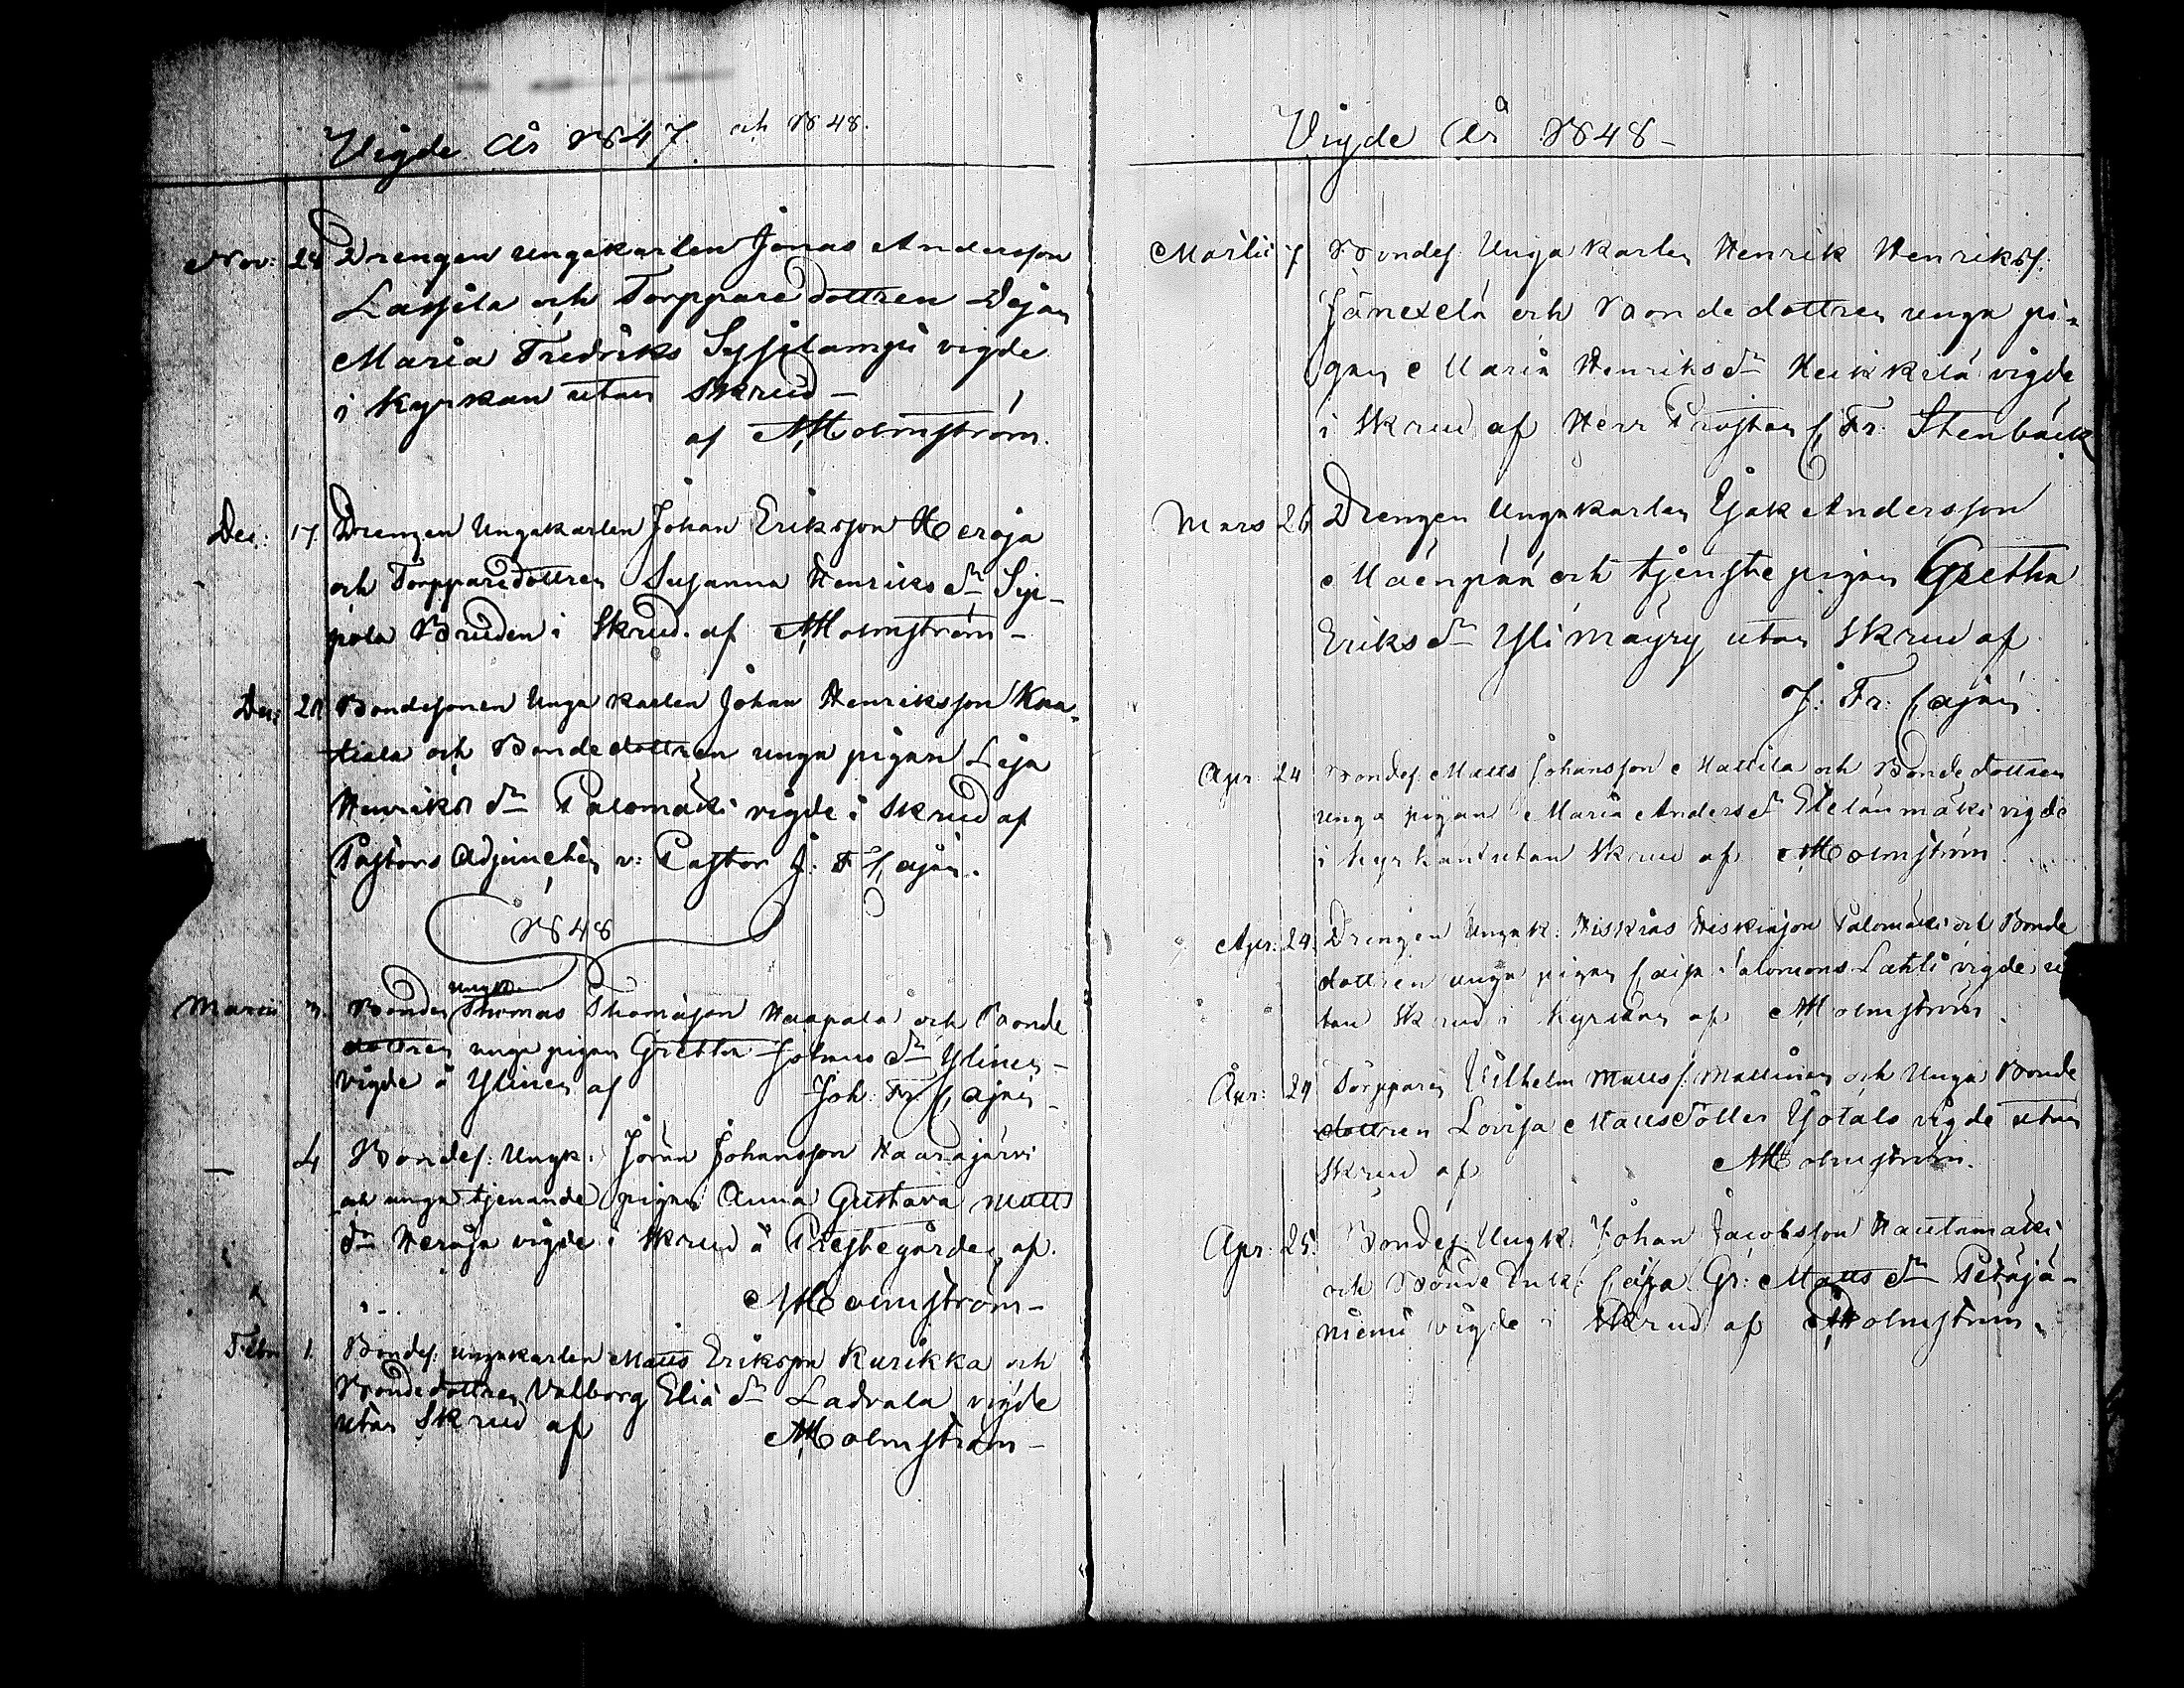 Vigde År 1847. och 1848.
Nov: 28 Drengen ungekarlen Jonas Andersson
Lassila och Torppare dottren Pigan
Maria Fredriks Syssilampi vigde
i Kyrkan utan Skrud –
af A Holmström.
Dec: 17 Drengen Ungekarlen Johan Eriksson Heroja
och Torpparedottren Susanna Henriks dr Sip-
pola Bruden i Skrud. af A Holmström –
Dec: 28 Bondesonen Unga karlen Johan Henriksson Kna-
tiala och Bondedottren unga pigan Lisa
Henriks dr Palomäki vigde i Skrud af
Pastors Adjuncten v: Pastor J: F Cajan.
1848
ungk.
Marcii 3. Bonden Thomas Thomasson Haapala och Bonde
dottren unga pigan Gretha Johans dr Ylinen –
vigde å Ylinen af Joh: Fr: Cajan –
– 4 Bondes: Ungk. Jöran Johansson Haarajärvi
och unga tjenande pigan Anna Gustava Matts
dr Heroja vigde i Skrud å Prestegården af.
A Holmström –
Febr 1. Bondes: ungakarlen Matts Eriksson Kurikka och
Bondedottren Valborg Elia dr Ladvala vigde
utan Skrud af A Holmström –
Vigde År 1848 –
Martii 7 Bondes Unga Karlen Henrik Henrikss:
och Bonde dottren unga pi-
gan Maria Henriks dr Heikkilä vigde
i Skrud af Herr Prosten C, Fr: Stenbäck
Mars 26 Drengen Ungakarlen Isak Andersson
Mäenpää och tjenste pigan Gretha
Eriks dr Ylimäyry utan Skrud af
J: Fr: Cajan
Apr: 24 Bondes. Matts Johansson Mattila och Bonde dottren
unga pigan Maria Anders dr Etelänmäki vigde
i Kyrkan utan Skrud af A Holmström.
Apr: 24. Drengen Ungk: Hiskias Hiskiasson Palomäki och Bonde
dottren unga pigan Caisa Salomons Lahti vigde u
tan Skrud i Kyrkan af A Holmström.
Apr: 24 Torpparen Vilhelm Matts s. Mattinen och Unga Bonde
dottren Lovisa Matts dotter Yotalo vigde utan
Skrud af A Holmström.
Apr: 25. Bondes: Ungk: Johan Jacobsson Hautamäki
och Bonde Enk: Caisa Gr: Matts dr Petäjä-
niemi vigde i Skrud af A Holmström.